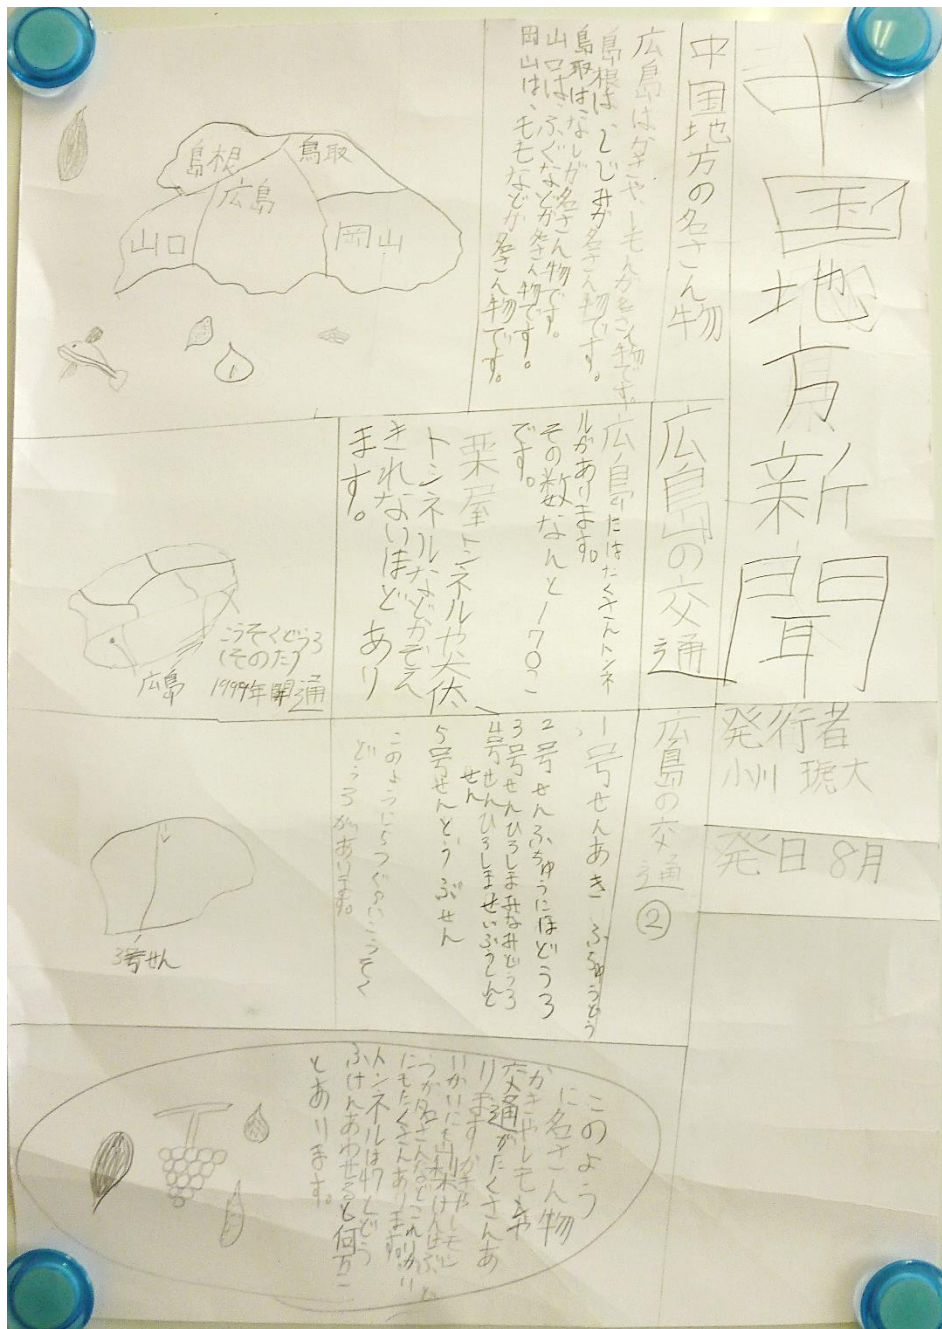 中国地方新聞
発行者
小川 琥大
発日 8月
中国地方の名さん物
広島はかきや、レモンが名さん物です。
島根は、しじみが名さん物です。
鳥取は、なしが名さん物です。
山口は、ふぐなどが名さん物です。
岡山は、ももなどが名さん物です。
島根
鳥取
広島
山口
岡山
広島の交通
広島にはたくさんトンネ
ルがあります。
その数なんと170こ
です。
栗屋トンネルや大休
トンネルなどかぞえ
きれないほど あり
ます。
こうそくどうろ
(そのた)
1999年開通
広島
広島の交通②
1号せんあき ふちゅうどうろ
2号せんふちゅうにほどうろ
3号せんひろしまみなみどうろ
4号せんひろしませいふうしんと
せん
5号せんとうぶせん
このように5つぐらいこうそく
どうろがあります。
3号せん
このよう
に名さん物
かきやレモンや
交通がたくさんあ
ります。かきやレモン
いがいにも山梨けんはぶど
うが名さんなどこれいがい
にもたくさんあります。
トンネルは47とどう
ふけんあわせると何万こ
とあります。